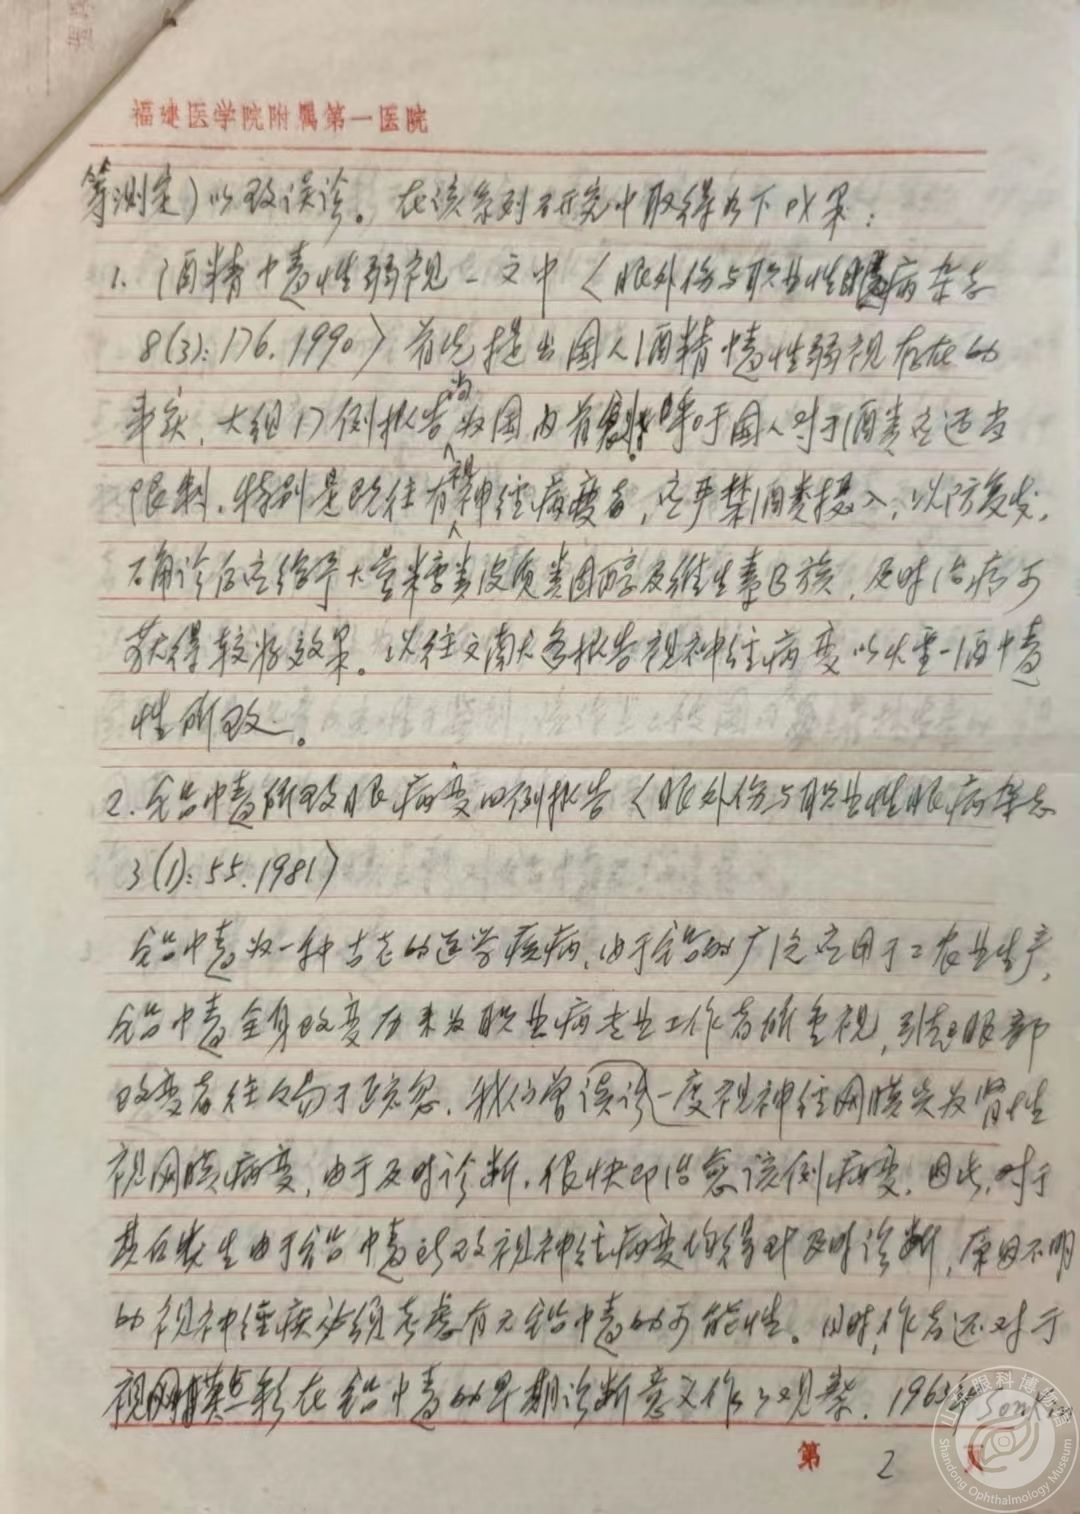 福建医学院附属第一医院
等测定）以致误诊。在该系列研究中取得如下成果：
1. 酒精中毒性弱视一文中〈眼外伤与职业性眼病杂志
8(3):176.1990〉首先提出国人酒精中毒性弱视存在的
事实，大组17例报告尚为国内首创，呼吁国人对于酒类应适当
限制。特别是既往有视神经病变者，应严禁酒类摄入，以防复发。
确诊后应给予大量糖类皮质类固醇及维生素B族，及时治疗可
获得较好效果。以往文献大多报告视神经病变以木醇中毒
性所致。
2. 铅中毒所致眼病变四例报告〈眼外伤与职业性眼病杂志
3(1):55.1981〉
铅中毒为一种古老的医学疾病，由于铅的广泛应用于工农业生产，
铅中毒全身改变历来为职业病专业工作者所重视，引起眼部
改变者往々易于疏忽。我们曾误诊一度视神经网膜炎为肾性
视网膜病变，由于及时诊断，很快即治愈该例病变。因此，对于
其后发生由于铅中毒所致视神经病变均得到及时诊断，原因不明
的视神经疾必须考虑有无铅中毒的可能性。同时，作者还对于
视网膜点彩在铅中毒的早期诊断意义作了观察。1963年Sonkin
第 2 页
山东眼科博物馆
Shandong Ophthalmology Museum